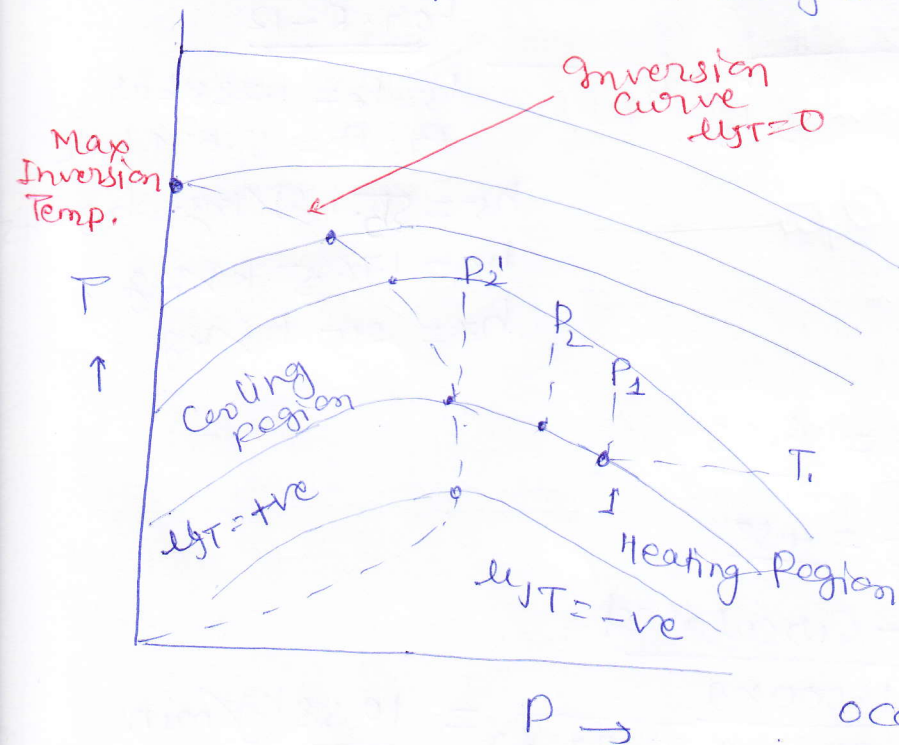 Inversion
Curve
μJT=0
Max.
Inversion
Temp.
T
↑
P2'
P2
P1
Cooling
Region
T1
1
μJT=+ve
Heating Region
μJT=-ve
P →